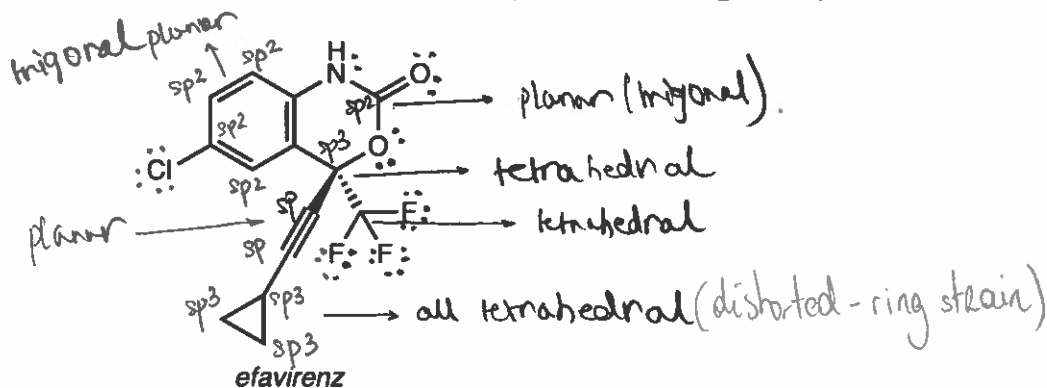 trigonal planar
sp2
sp2
H
N
O
sp2
planar (trigonal).
sp2
sp3
O
Cl
tetrahedral
sp2
sp
F
planar
tetrahedral
F
F
sp
sp3
sp3
all tetrahedral (distorted - ring strain)
sp3
efavirenz